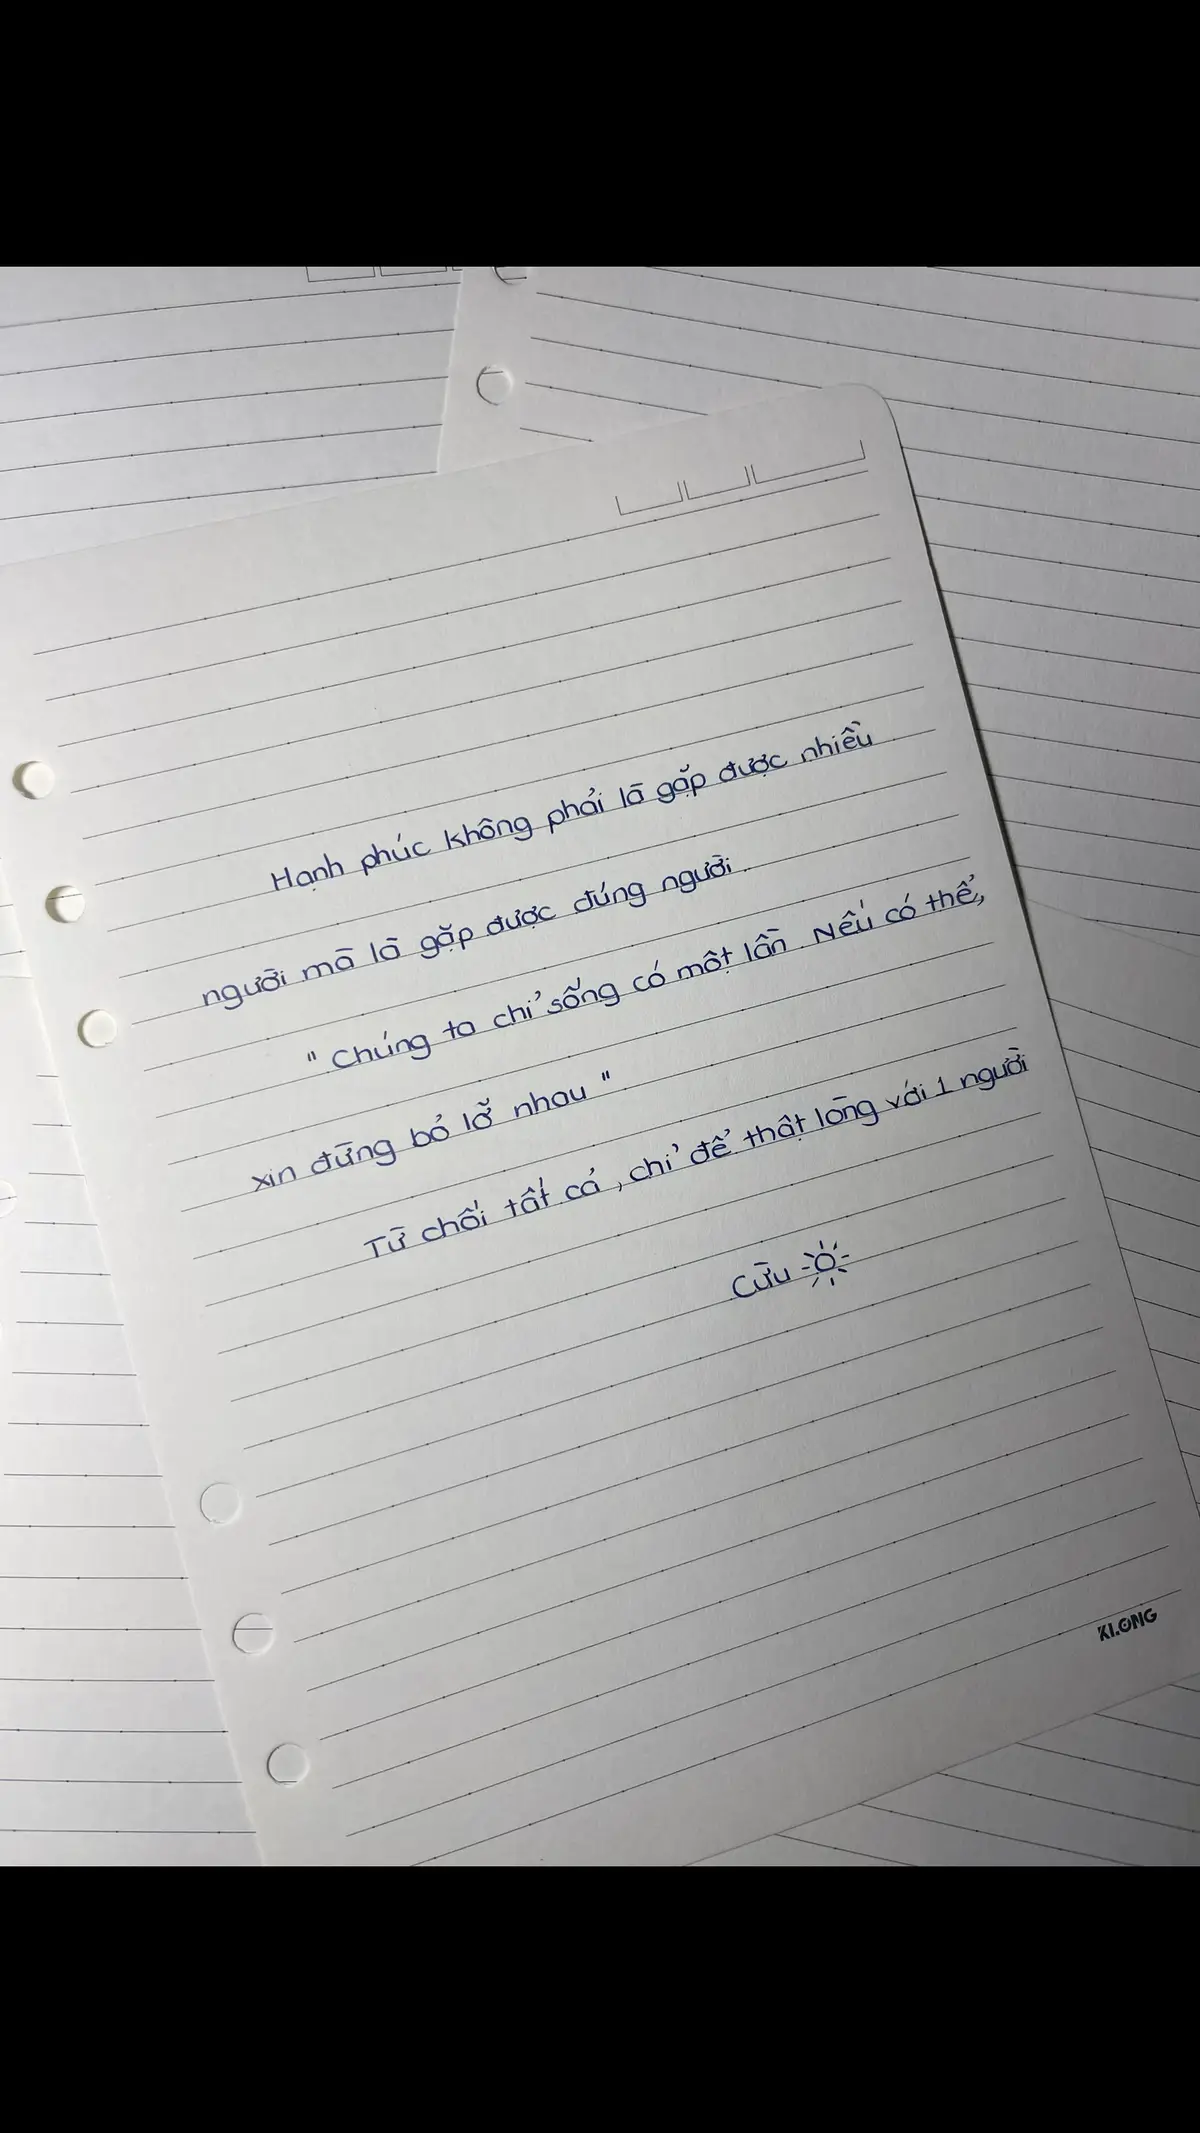 Hạnh phúc không phải là gặp được nhiều
người mà là gặp được đúng người.
" Chúng ta chỉ sống có một lần. Nếu có thể,
xin đừng bỏ lỡ nhau "
Từ chối tất cả, chỉ để thật lòng với 1 người
Cừu
KLONG